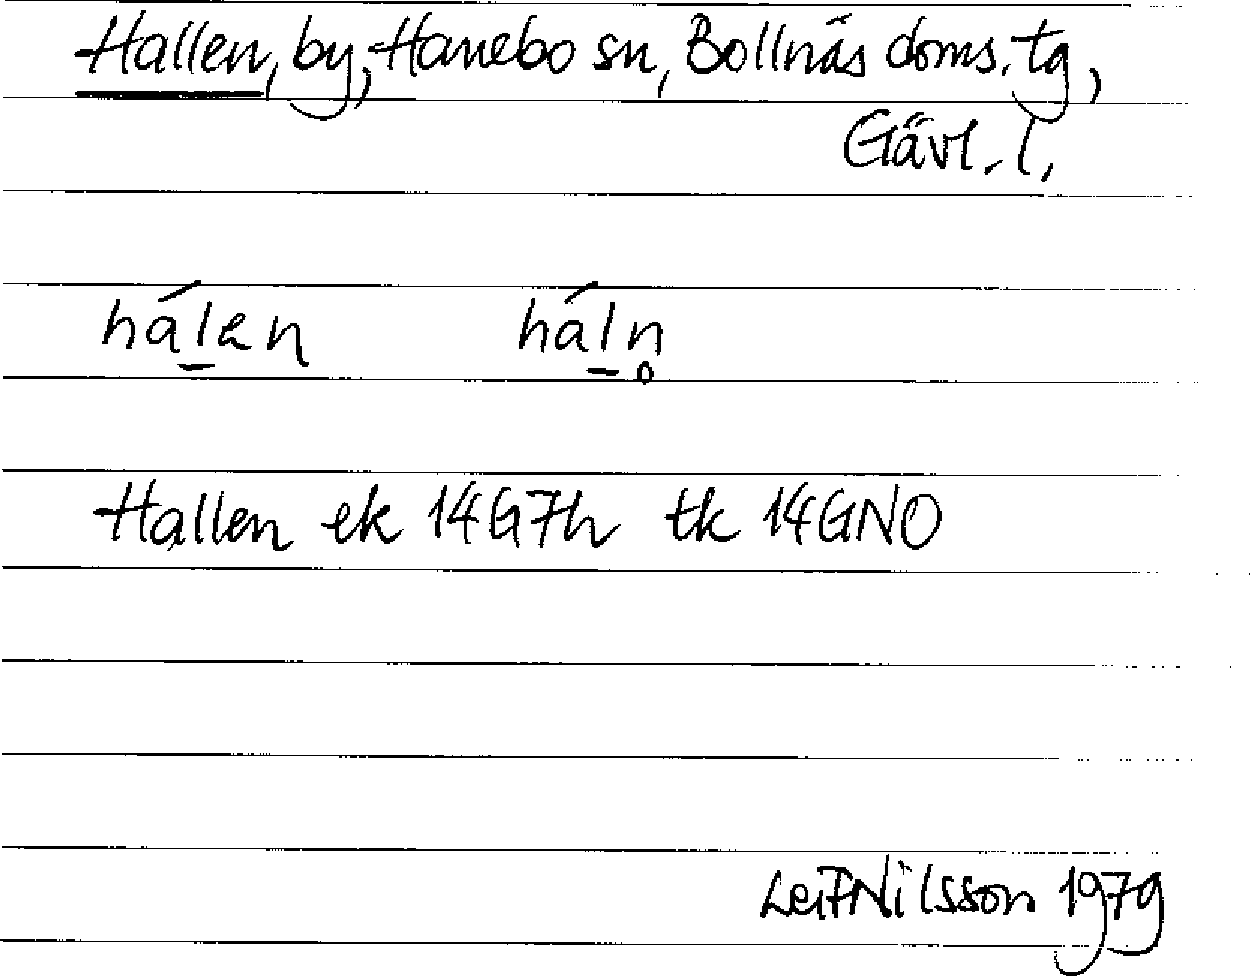 Hallen, by, Hanebo sn, Bollnäs doms. tg,
Gävl. l.
hál̠en hál̠n̥
Hallen ek 14G7h tk 14GNO
Leif Nilsson 1979